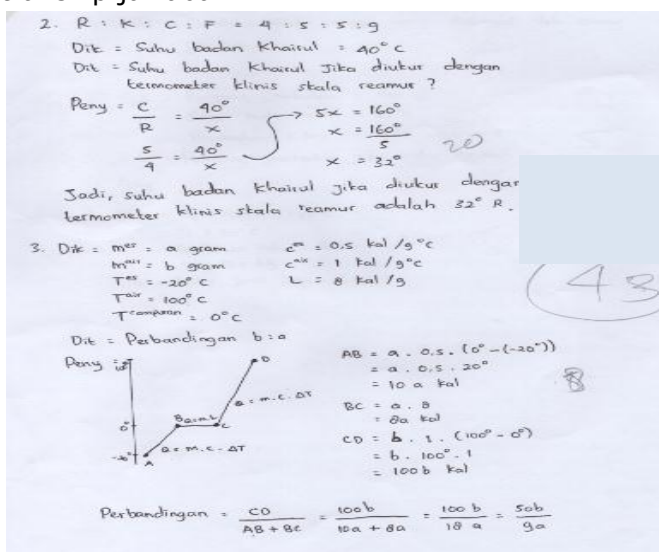 2. R : K : C : F = 4 : 5 : 5 : 9
Dik = Suhu badan Khairul = 40° C
Dit = Suhu badan Khairul Jika diukur dengan
termometer klinis skala reamur ?
Peny = C/R = 40°/x → 5x = 160°
5/4 = 40°/x
x = 160°/5
x = 32°
20
Jadi, suhu badan Khairul jika diukur dengan
termometer klinis skala reamur adalah 32° R.
3. Dik = m^es = a gram c^es = 0.5 kal /g°c
m^air = b gram c^air = 1 kal /g°c
T^es = -20° C L = 8 kal /g
T^air = 100° C
T^campuran = 0° C
43
Dit = Perbandingan b : a
Peny =
D
B Q = m.L C
0°
Q = m.c.ΔT
Q = m.c.ΔT
A
AB = a . 0.5 . (0° - (-20°))
= a . 0.5 . 20°
= 10 a kal
BC = a . 8
= 8a kal
CD = b . 1 . (100° - 0°)
= b . 100° . 1
= 100 b kal
8
Perbandingan = CD/(AB + BC) = 100b/(10a + 8a) = 100 b/18 a = 50b/9a